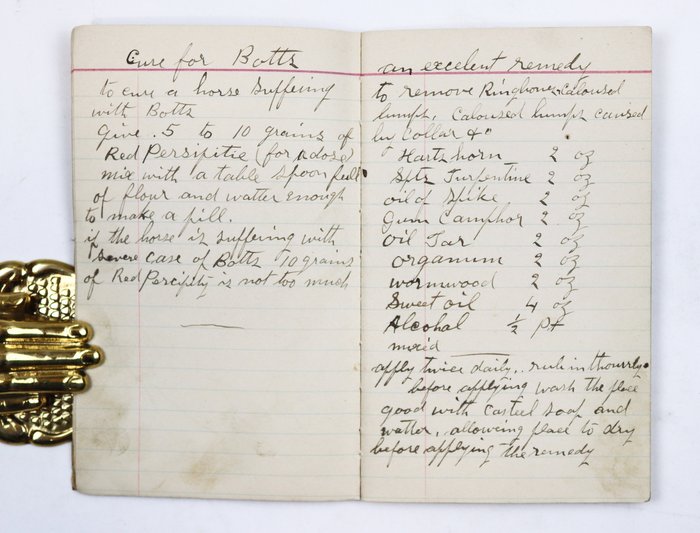 Cure for Botts
to cure a horse suffering
with Botts
Give .. 5 to 10 grains of
Red Persipitie (for a dose)
mix with a table spoon full
of flour and watter enough
to make a pill.
if the horse is suffering with
severe case of Botts 10 grains
of Red Percipity is not too much
an excelent remedy
to remove Ringbones calousd
lumps, Caloused lumps caused
by Collar &"
Hartshorn 2 oz
Spts Turpentine 2 oz
oil of Spike 2 oz
Gum Camphor 2 oz
oil Tar 2 oz
organum 2 oz
wormwood 2 oz
Sweet oil 4 oz
Alcohal ½ pt
mixed
apply twice daily, . rub in thourrly
before applying wash the place
good with Casteel soap and
watter, allowing place to dry
before applying the remedy